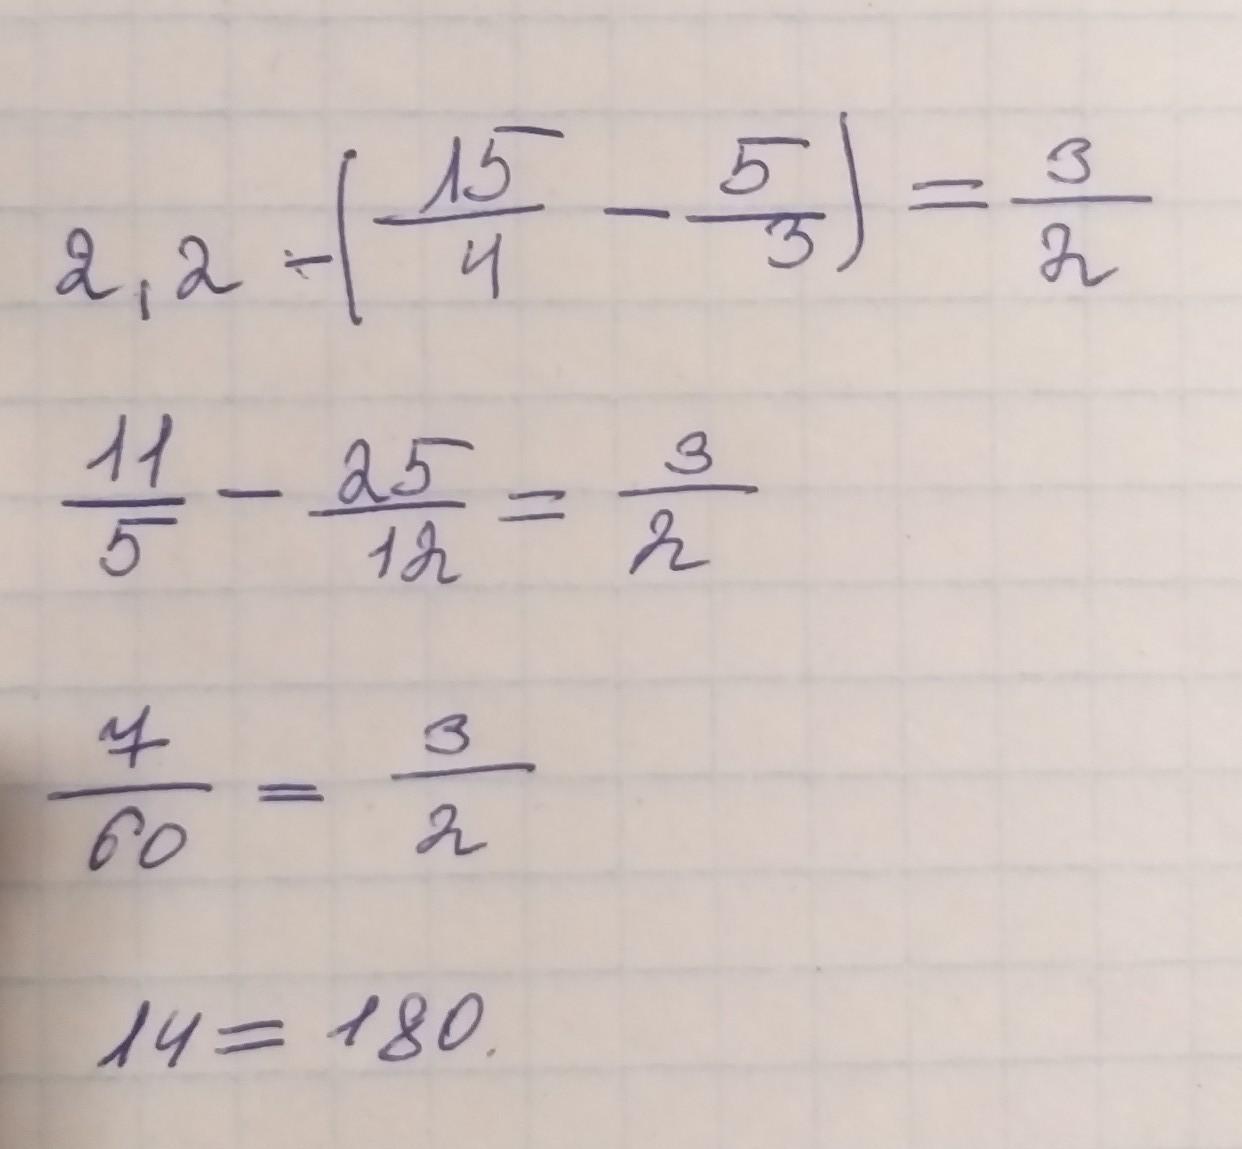 2,2 - (15/4 - 5/3) = 3/2
11/5 - 25/12 = 3/2
7/60 = 3/2
14 = 180.